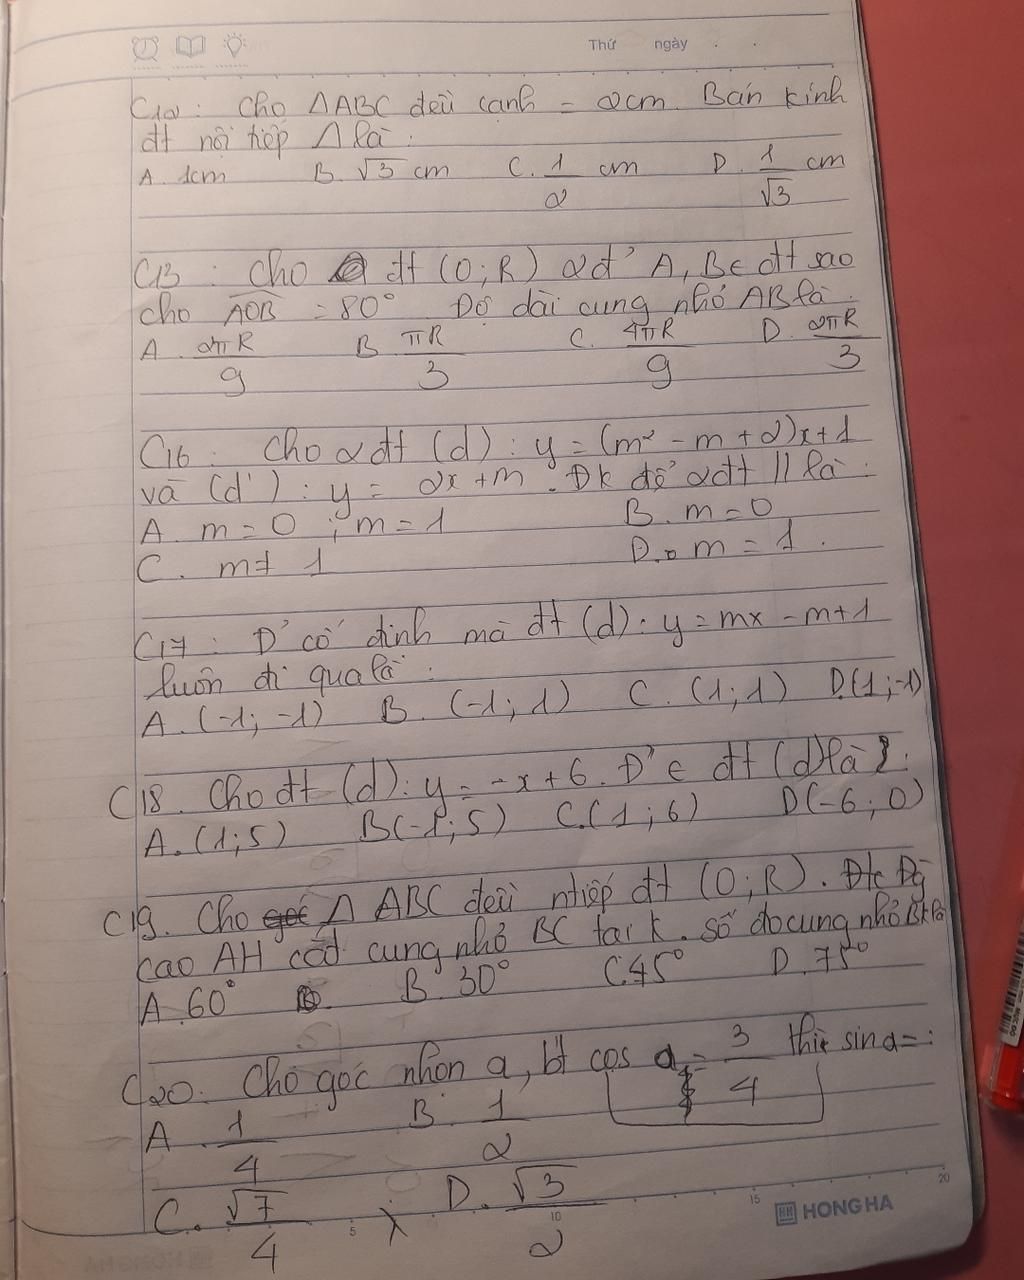 Thứ ngày . .
C12 : Cho ΔABC đều cạnh = 2cm. Bán kính
đt nội tiếp Δ là :
A. 1cm B. √3 cm C. 1/2 cm D. 1/√3 cm
C13 : Cho đt (O;R) 2đ' A, B ∈ đtt sao
cho AOB = 80° Độ dài cung nhỏ AB là :
A. 2πR/9 B. πR/3 C. 4πR/9 D. 2πR/3
C16 : Cho 2đt (d) : y = (m² - m + 2)x + 1
và (d') : y = 2x + m . Đk để 2đt // là :
A. m = 0 ; m = 1 B. m = 0
C. m ≠ 1 D. m = 1 .
C17 : Đ' cố định mà đt (d) : y = mx - m + 1
luôn đi qua là :
A. (-1; -1) B. (-1; 1) C. (1; 1) D. (1; -1)
C18. Cho đt (d) : y = -x + 6. Đ' ∈ đt (d) là :
A. (1; 5) B (-1; 5) C. (1; 6) D (-6; 0)
C19. Cho Δ ABC đều ntiếp đtt (O; R). Đg
cao AH cắt cung nhỏ BC tại K. số đo cung nhỏ BK là
A. 60° B. 30° C. 45° D. 75°
C20. Cho góc nhọn a, bt cos a = 3/4 thì sin a = :
A. 1/4 B. 1/2
C. √7/4 D. √3/2
5 10 15 20
HH HONG HA